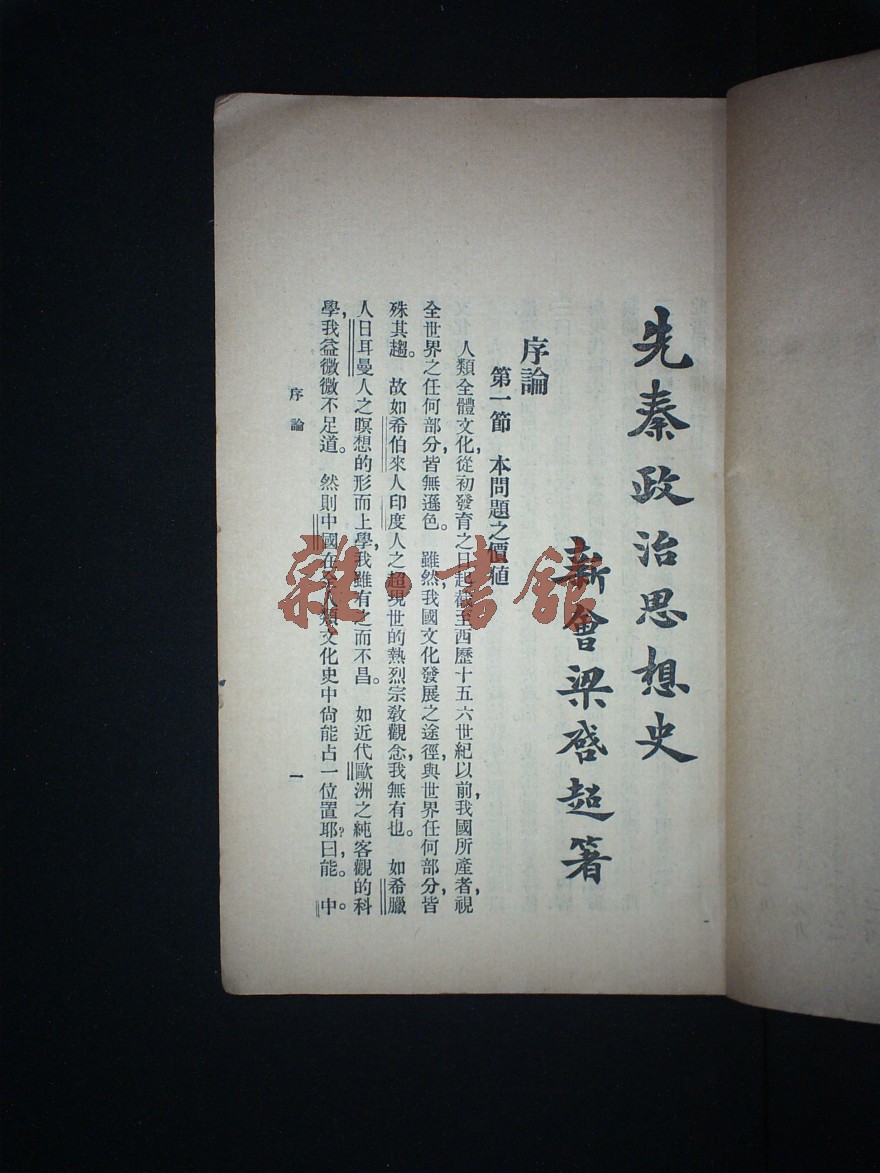 先秦政治思想史
新會梁啓超著
序論
第一節　本問題之價値
人類全體文化，從初發育之日起，截至西歷十五六世紀以前，我國所產者，視
全世界之任何部分，皆無遜色。雖然，我國文化發展之途徑，與世界任何部分，皆
殊其趨。故如希伯來人印度人之超現世的熱烈宗敎觀念，我無有也。如希臘
人日耳曼人之瞑想的形而上學，我雖有之而不昌。如近代歐洲之純客觀的科
學，我益微微不足道。然則中國在全人類文化史中尙能占一位置耶？曰，能。中
序論
一
雜·書館